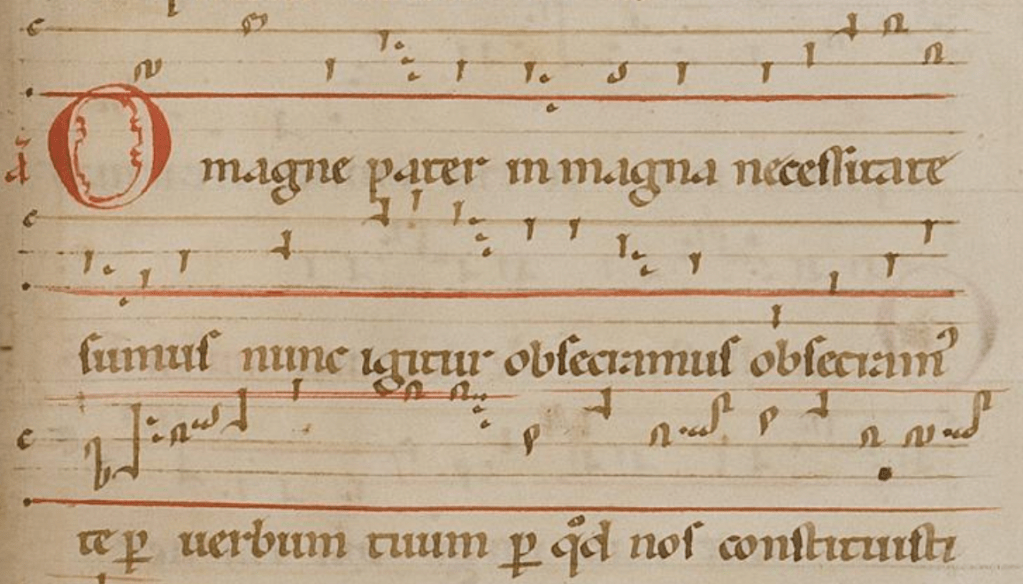 O magne pater in magna necessitate
sumus nunc igitur obsecramus obsecram᾽
te ꝑ uerbum tuum ꝑ qͦd nos constituisti